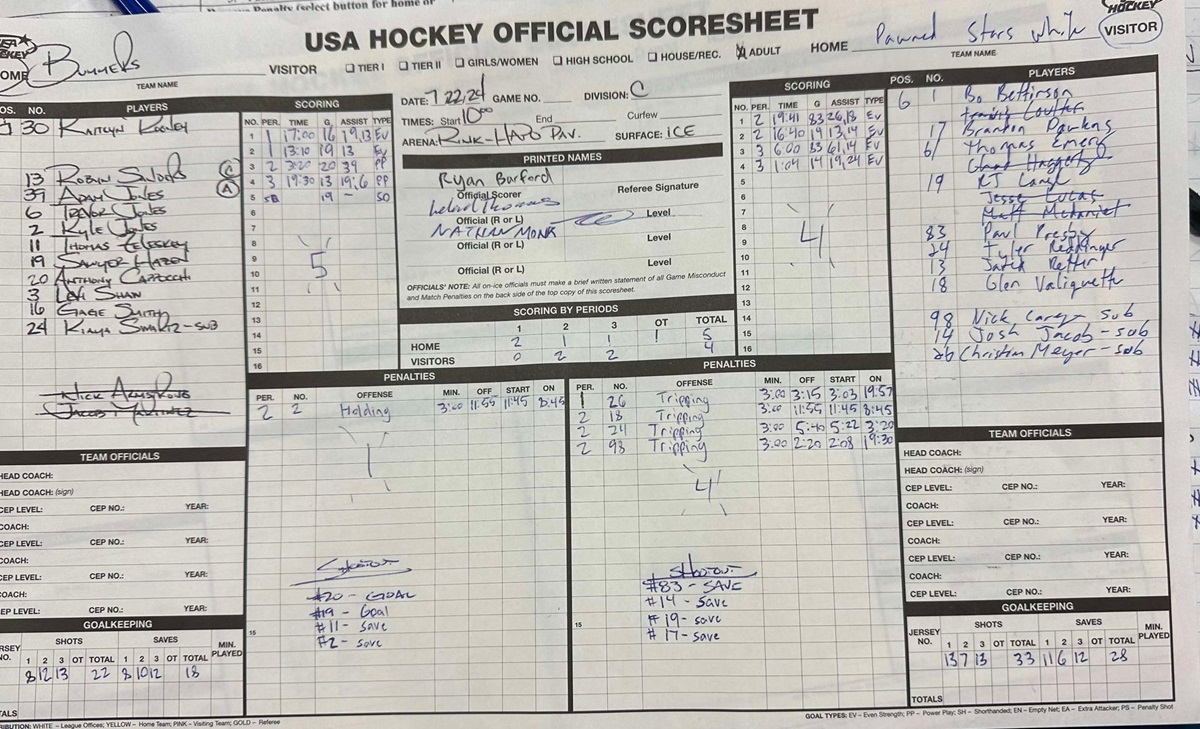 Penalty (select button for home or
USA HOCKEY OFFICIAL SCORESHEET
HOCKEY
HOME Bummers VISITOR
TEAM NAME
☐ TIER I ☐ TIER II ☐ GIRLS/WOMEN ☐ HIGH SCHOOL ☐ HOUSE/REC. ☒ ADULT
HOME Pawned Stars White VISITOR
TEAM NAME
POS. NO. PLAYERS
30 Kaitlyn
13 Robyn
39 Adam Jones
6 Trevor Jones
2 Kyle Jones
11 Thomas Zeleskey
19 Sawyer Hazen
20 Anthony Cappocchi
3 Levi Shan
16 Gage Smith
24 Kiaya Swartz-sub
Nick Armstrong
Jacob Martinez
SCORING
NO. PER. TIME G ASSIST TYPE
1 1 17:00 16 19,13 Ev
2 1 13:10 19 13 Ev
3 2 3:20 20 39 PP
4 3 19:30 13 19,6 PP
5 19 - SO
6
7
8
9
10
11
12
13
14
15
16
5
DATE: 7 22,24 GAME NO. DIVISION: C
TIMES: Start 10:00 End Curfew
ARENA: Rink-HAPO Pav. SURFACE: ICE
PRINTED NAMES
Ryan Burford
Official Scorer Referee Signature
Leland Thomas
Official (R or L) Level
NATHAN MONK
Official (R or L) Level
Official (R or L) Level
OFFICIALS' NOTE: All on-ice officials must make a brief written statement of all Game Misconduct
and Match Penalties on the back side of the top copy of this scoresheet.
SCORING BY PERIODS
1 2 3 OT TOTAL
HOME 2 1 1 1 5
VISITORS 0 2 2 4
SCORING
NO. PER. TIME G ASSIST TYPE
1 2 19:41 83 26,18 Ev
2 2 16:40 19 13,14 Ev
3 3 6:00 83 61,14 Ev
4 3 1:04 14 19,24 Ev
5
6
7
8
9
10
11
12
13
14
15
16
4
POS. NO. PLAYERS
G 1 Bo Bettinson
Travis Coulter
17 Brandon Pawkens
61 Thomas Emery
Chad Haggerty
19 RJ Lange
Jesse Lucas
Matt McDaniel
83 Paul Presby
24 Tyler Readinger
13 Jared Retter
18 Glen Valiquette
98 Nick Carego Sub
14 Josh Jacob - sub
26 Christian Meyer - sub
PENALTIES
PER. NO. OFFENSE MIN. OFF START ON
2 2 Holding 3:00 11:55 11:45 8:45
1
PENALTIES
PER. NO. OFFENSE MIN. OFF START ON
1 26 Tripping 3:00 3:15 3:03 19:57
2 18 Tripping 3:00 11:55 11:45 8:45
2 24 Tripping 3:00 5:40 5:22 3:20
2 98 Tripping 3:00 2:20 2:08 19:30
4
Shootout
#20 - GOAL
#19 - Goal
#11 - save
#2 - save
15
Shootout
#83 - SAVE
#14 - Save
#19 - save
#17 - save
15
TEAM OFFICIALS
HEAD COACH:
HEAD COACH: (sign)
CEP LEVEL: CEP NO.: YEAR:
COACH:
CEP LEVEL: CEP NO.: YEAR:
COACH:
CEP LEVEL: CEP NO.: YEAR:
COACH:
CEP LEVEL: CEP NO.: YEAR:
GOALKEEPING
JERSEY NO. SHOTS SAVES MIN. PLAYED
1 2 3 OT TOTAL 1 2 3 OT TOTAL
8 12 13 22 8 10 12 18
TOTALS
TEAM OFFICIALS
HEAD COACH:
HEAD COACH: (sign)
CEP LEVEL: CEP NO.: YEAR:
COACH:
CEP LEVEL: CEP NO.: YEAR:
COACH:
CEP LEVEL: CEP NO.: YEAR:
COACH:
CEP LEVEL: CEP NO.: YEAR:
GOALKEEPING
JERSEY NO. SHOTS SAVES MIN. PLAYED
1 2 3 OT TOTAL 1 2 3 OT TOTAL
13 7 13 33 11 6 12 28
TOTALS
DISTRIBUTION: WHITE – League Offices; YELLOW – Home Team; PINK – Visiting Team; GOLD – Referee
GOAL TYPES: EV – Even Strength; PP – Power Play; SH – Shorthanded; EN – Empty Net; EA – Extra Attacker; PS – Penalty Shot